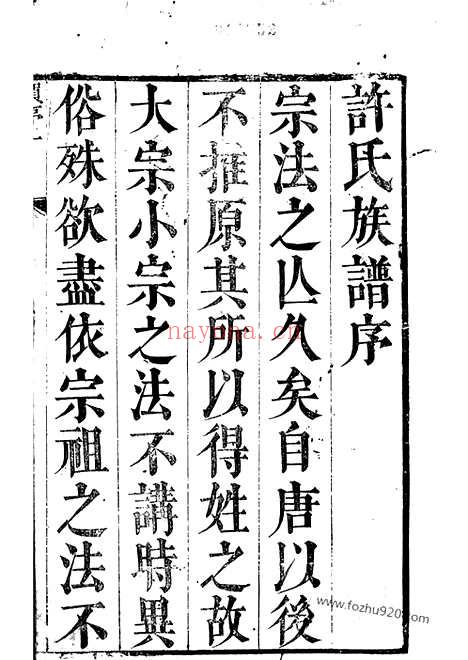 許氏族譜序
宗法之亾久矣自唐以後
不推原其所以得姓之故
大宗小宗之法不講時異
俗殊欲盡依宗祖之法不
nayona.cn
www.fozhu920.com